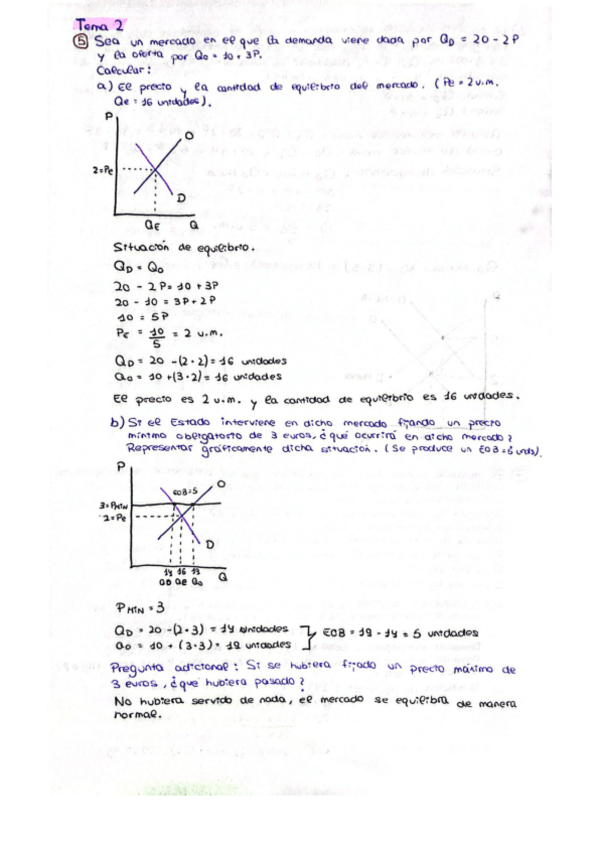 Tema 2
⑤ Sea un mercado en el que la demanda viene dada por QD = 20 - 2P
y la oferta por Qo = 10 + 3P.
Calcular:
a) El precio y la cantidad de equilibrio del mercado. (Pe = 2 u.m.
Qe = 16 unidades).
P
O
2=Pe
D
QE Q
Situación de equilibrio.
QD = Qo
20 - 2P = 10 + 3P
20 - 10 = 3P + 2P
10 = 5P
PE = 10/5 = 2 u.m.
QD = 20 - (2 · 2) = 16 unidades
Qo = 10 + (3 · 2) = 16 unidades
El precio es 2 u.m. y la cantidad de equilibrio es 16 unidades.
b) Si el Estado interviene en dicho mercado fijando un precio
mínimo obligatorio de 3 euros, ¿qué ocurrirá en dicho mercado?
Representar gráficamente dicha situación. (Se produce un EOB=5 unds).
P
EOB=5 O
3=PMIN
2=Pe
D
14 16 19
QD QE Qo Q
PMIN = 3
QD = 20 - (2 · 3) = 14 unidades
Qo = 10 + (3 · 3) = 19 unidades
EOB = 19 - 14 = 5 unidades
Pregunta adicional: Si se hubiera fijado un precio máximo de
3 euros, ¿que hubiera pasado?
No hubiera servido de nada, el mercado se equilibra de manera
normal.